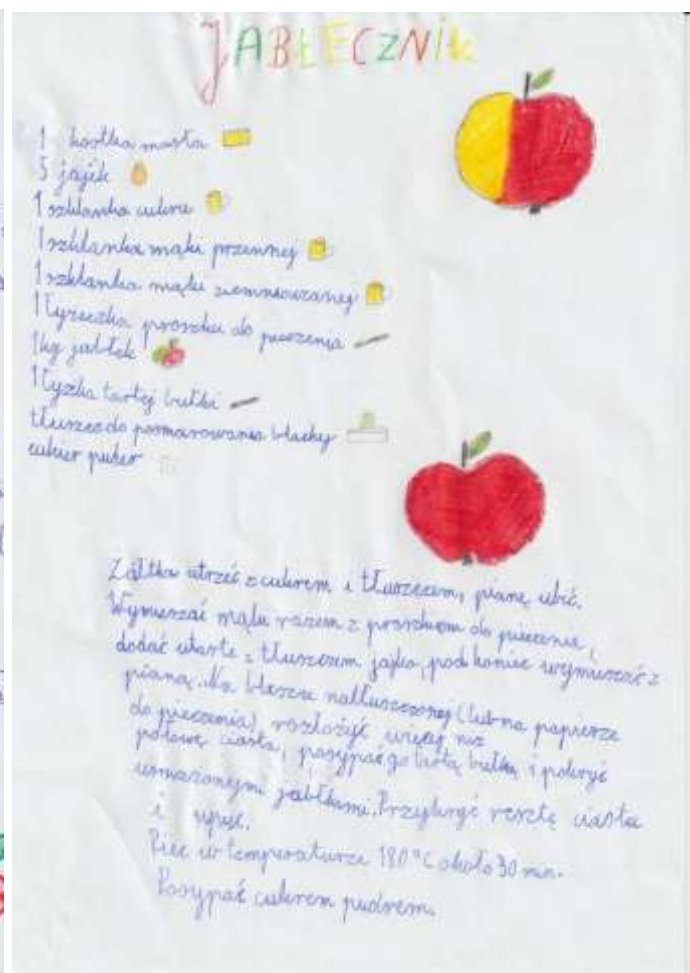 JABŁECZNIK
1 kostka masła
5 jajek
1 szklanka cukru
1 szklanka mąki przennej
1 szklanka mąki ziemniaczanej
1 łyżeczka proszku do pieczenia
1 kg jabłek
1 łyżka tartej bułki
tłuszcz do posmarowania blachy
cukier puder
Żółtka utrzeć z cukrem i tłuszczem, pianę ubić.
Wymieszać mąkę razem z proszkiem do pieczenia,
dodać utarte z tłuszczem jajka, pod koniec wymieszać z
pianą. Na blaszce natłuszczonej (lub na papierze
do pieczenia) rozłożyć więcej niż
połowę ciasta, posypać go tartą bułką i pokryć
usmażonymi jabłkami. Przykryć resztą ciasta
i upiec.
Piec w temperaturze 180°C około 30 min.
Posypać cukrem pudrem.